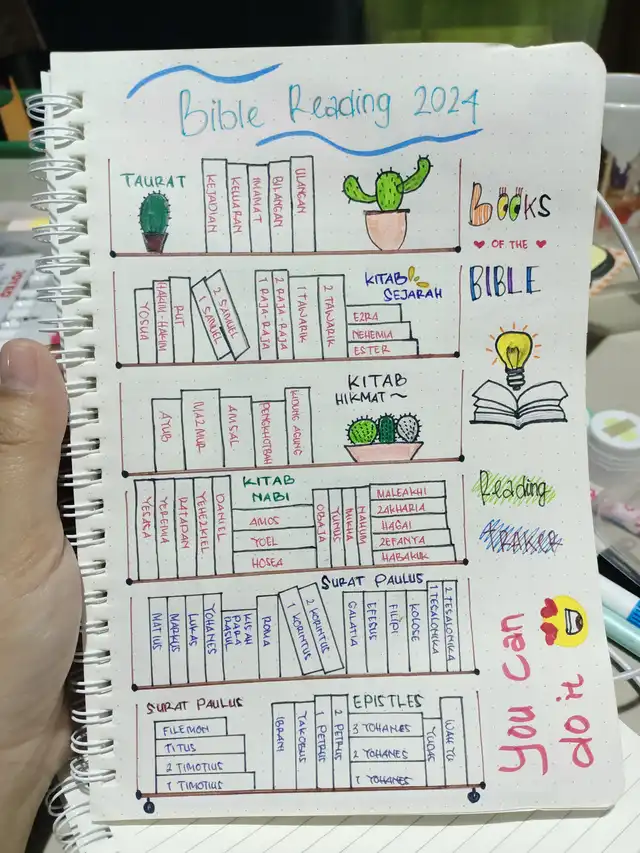 Bible Reading 2024
TAURAT
KEJADIAN
KELUARAN
IMAMAT
BILANGAN
ULANGAN
BOOKS
OF THE
BIBLE
KITAB
SEJARAH
YOSUA
HAKIM-HAKIM
RUT
1 SAMUEL
2 SAMUEL
1 RAJA-RAJA
2 RAJA-RAJA
1 TAWARIK
2 TAWARIK
EZRA
NEHEMIA
ESTER
KITAB
HIKMAT~
AYUB
MAZMUR
AMSAL
PENGKHOTBAH
KIDUNG AGUNG
KITAB
NABI
YESAYA
YEREMIA
RATAPAN
YEHEZKIEL
DANIEL
AMOS
YOEL
HOSEA
OBAJA
YUNUS
MIKHA
NAHUM
MALEAKHI
ZAKHARIA
HAGAI
ZEFANYA
HABAKUK
Reading
TRAKER
SURAT PAULUS
MATIUS
MARKUS
LUKAS
YOHANES
KISAH
PARA
RASUL
ROMA
1 KORINTUS
2 KORINTUS
GALATIA
EFESUS
FILIPI
KOLOSE
1 TESALONIKA
2 TESALONIKA
SURAT PAULUS
FILEMON
TITUS
2 TIMOTIUS
1 TIMOTIUS
IBRANI
YAKOBUS
1 PETRUS
2 PETRUS
EPISTLES
3 YOHANES
2 YOHANES
1 YOHANES
YUDAS
WAHYU
You Can
do it